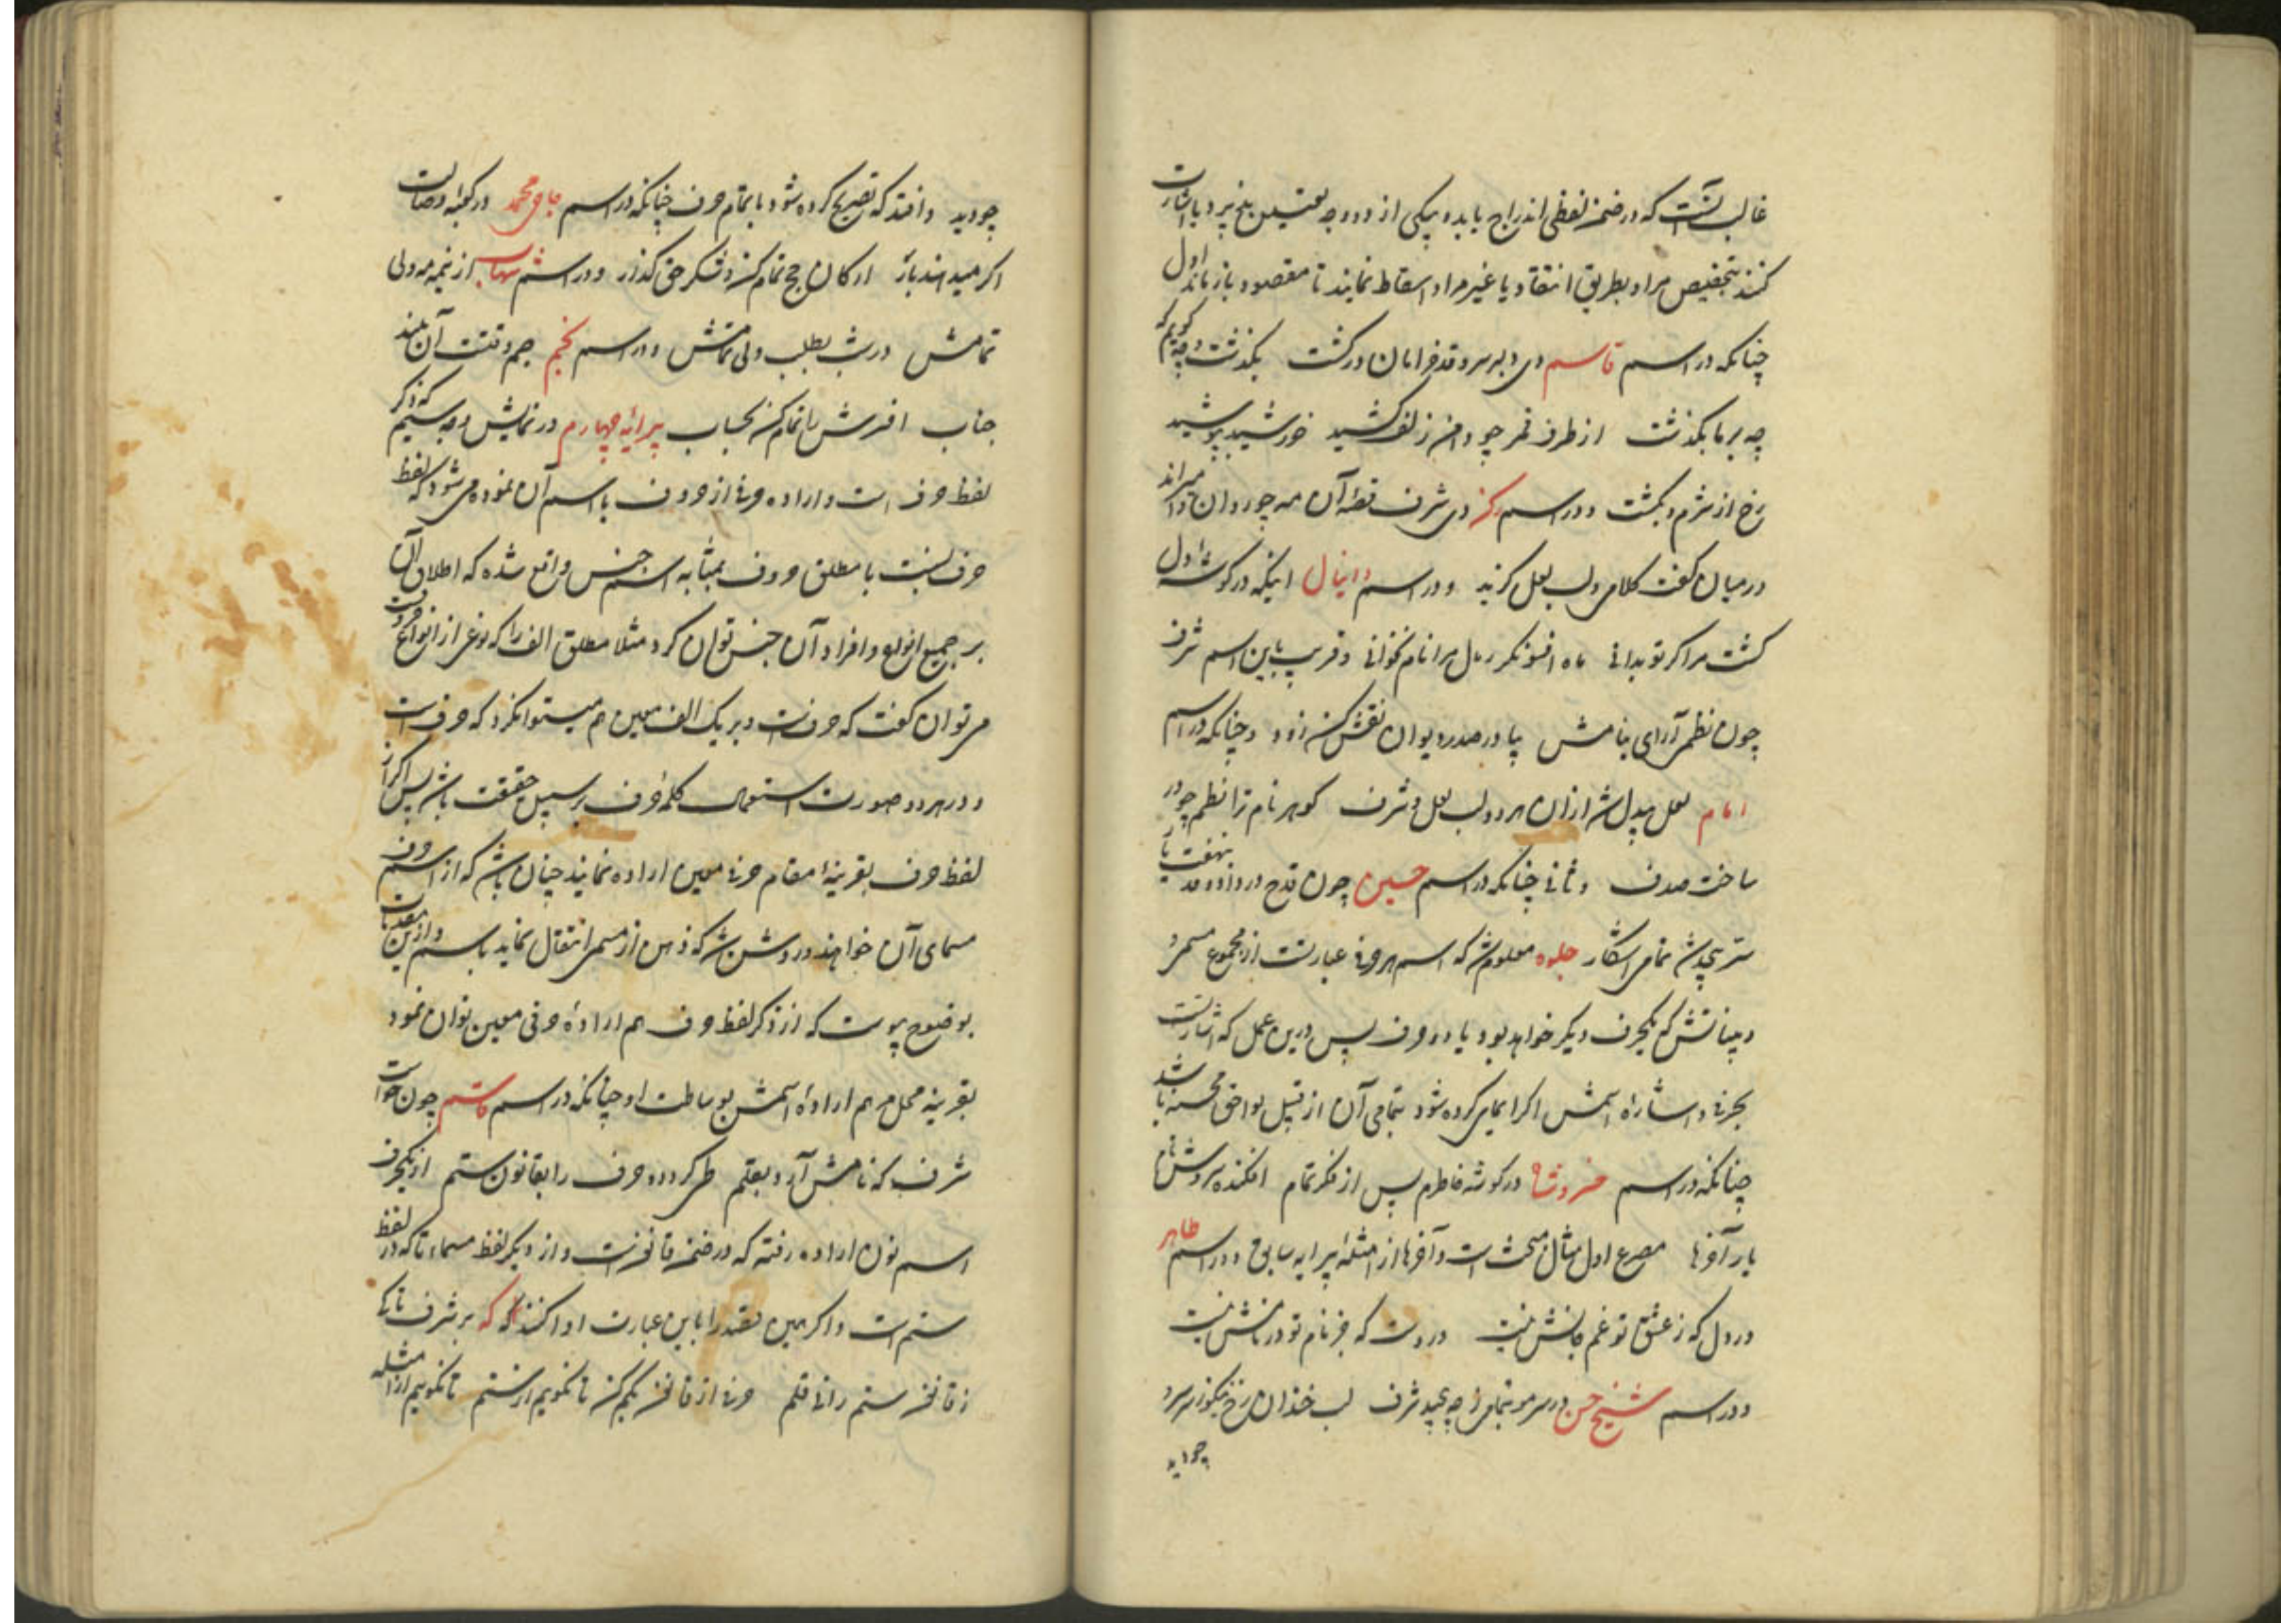 غالب آنست که در ضمن لفظی اندراج یابد و بیکی از دو وجه تعیین پذیرد یا اشارت
کنند بتخصیص مراد بطریق انتقاد یا غیر مراد اسقاط نمایند تا مقصود باز ماند اول
چنانکه در اسم قاسم دی دلبر سرو قد خرامان درگشت بگذشت و چه گویم که
چه بر ما بگذشت از طرف قمر چو دامن زلف کشید خورشید بپوشید
رخ از شرم و بگشت و در اسم دی شرف قصه آن مه چو روان میراند
در میان گفت کلامی و لب لعل گزید و در اسم دانیال اینکه در گوشه اول
گشت مرا گر تو بدانی ماه افسونگر رمال مرا نام نخوانی و قریب باین اسم شرف
چون نظم آرای بنامش بیا در صدر دیوان نقش کن زود و چنانکه در اسم
امام لعل بیدل شد ازان هر دو لب لعل و شرف گوهر نام ترا نظم چو در
ساخت صدف و ثانی چنانکه در اسم حسین چون قدح در داد و قد بنهفت یار
سر بپیچیدش تمامی آشکار جلوه معلوم شد که اسم هر حرفی عبارتست از مجموع مسمی و
بیناتش که یکحرف دیگر خواهد بود یا دو حرف پس درین عمل که اشارتست
بحرفی و اشاره اسمش اگر ایمای کرده شود بتمامی آن از قبیل لواحق محسنه باشد
چنانکه در اسم در گوشه خاطرم پس از فکر تمام افکنده سروش نام
یار آخرها مصرع اول مثال مبحث است و آخرها از امثله پیرایه سابق و در اسم طاهر
در دل که ز عشق تو غم جانش نیست دردیست که جز نام تو درمانش نیست
و در اسم شیخ حسن در سر مو بتمامی چه بپیچید شرف لب خندان رخ نیکو سر و
چو دید
چو دید و افتد که تصریح کرده شود باتمام حرف چنانکه در اسم حاجی محمد در کعبه وصالت
اگر میدهند بار ارکان حج تمام کن و شکر حق گذار و در اسم شهاب از نیمه مه ولی
تمامش در شب بطلب ولی تمامش و در اسم نجم جم وقتست آن بلند
جناب افسرش را تمام کن بحساب پیرایه چهارم در نمایش وجه سیم که ذکر
لفظ حرف است و اراده حرفی از حروف یا اسم آن نموده می شود که لفظ
حرف نسبت با مطلق حروف بمثابه اسم جنس واقع شده که اطلاق آن
بر جمیع انواع و افراد آن جنس توان کرد مثلا مطلق الف را که نوعی از انواع حروفست
می توان گفت که حرفست و بر یک الف معین هم میتوان کرد که حرفست
و در هر دو صورت استعمال کلمه حرف بر سبیل حقیقت باشد پس اگر از
لفظ حرف بقرینه مقام حرفی معین اراده نمایند چنان باشد که از اسم حرف
مسمای آن خواهند و روشن شد که ذهن از مسمی انتقال نماید باسم و ازین مقدمات
بوضوح پیوست که از ذکر لفظ حرف هم اراده حرفی معین توان نمود
بقرینه محل و هم اراده اسمش بوساطت او چنانکه در اسم قاسم چون خواست
شرف که نامش آرد بقلم طی کرد دو حرف را بقانون ستم از یکحرف
اسم نون اراده رفته که در ضمن قانونست و از دیگر لفظ مسماء تا که در لفظ
ستم است و اگر همین مقصد را باین عبارت ادا کنند که بر شرف تا کی
ز قانون ستم رانی قلم حرفی از قانون کم کن تا نگویم از ستم تا نگوییم از امثله